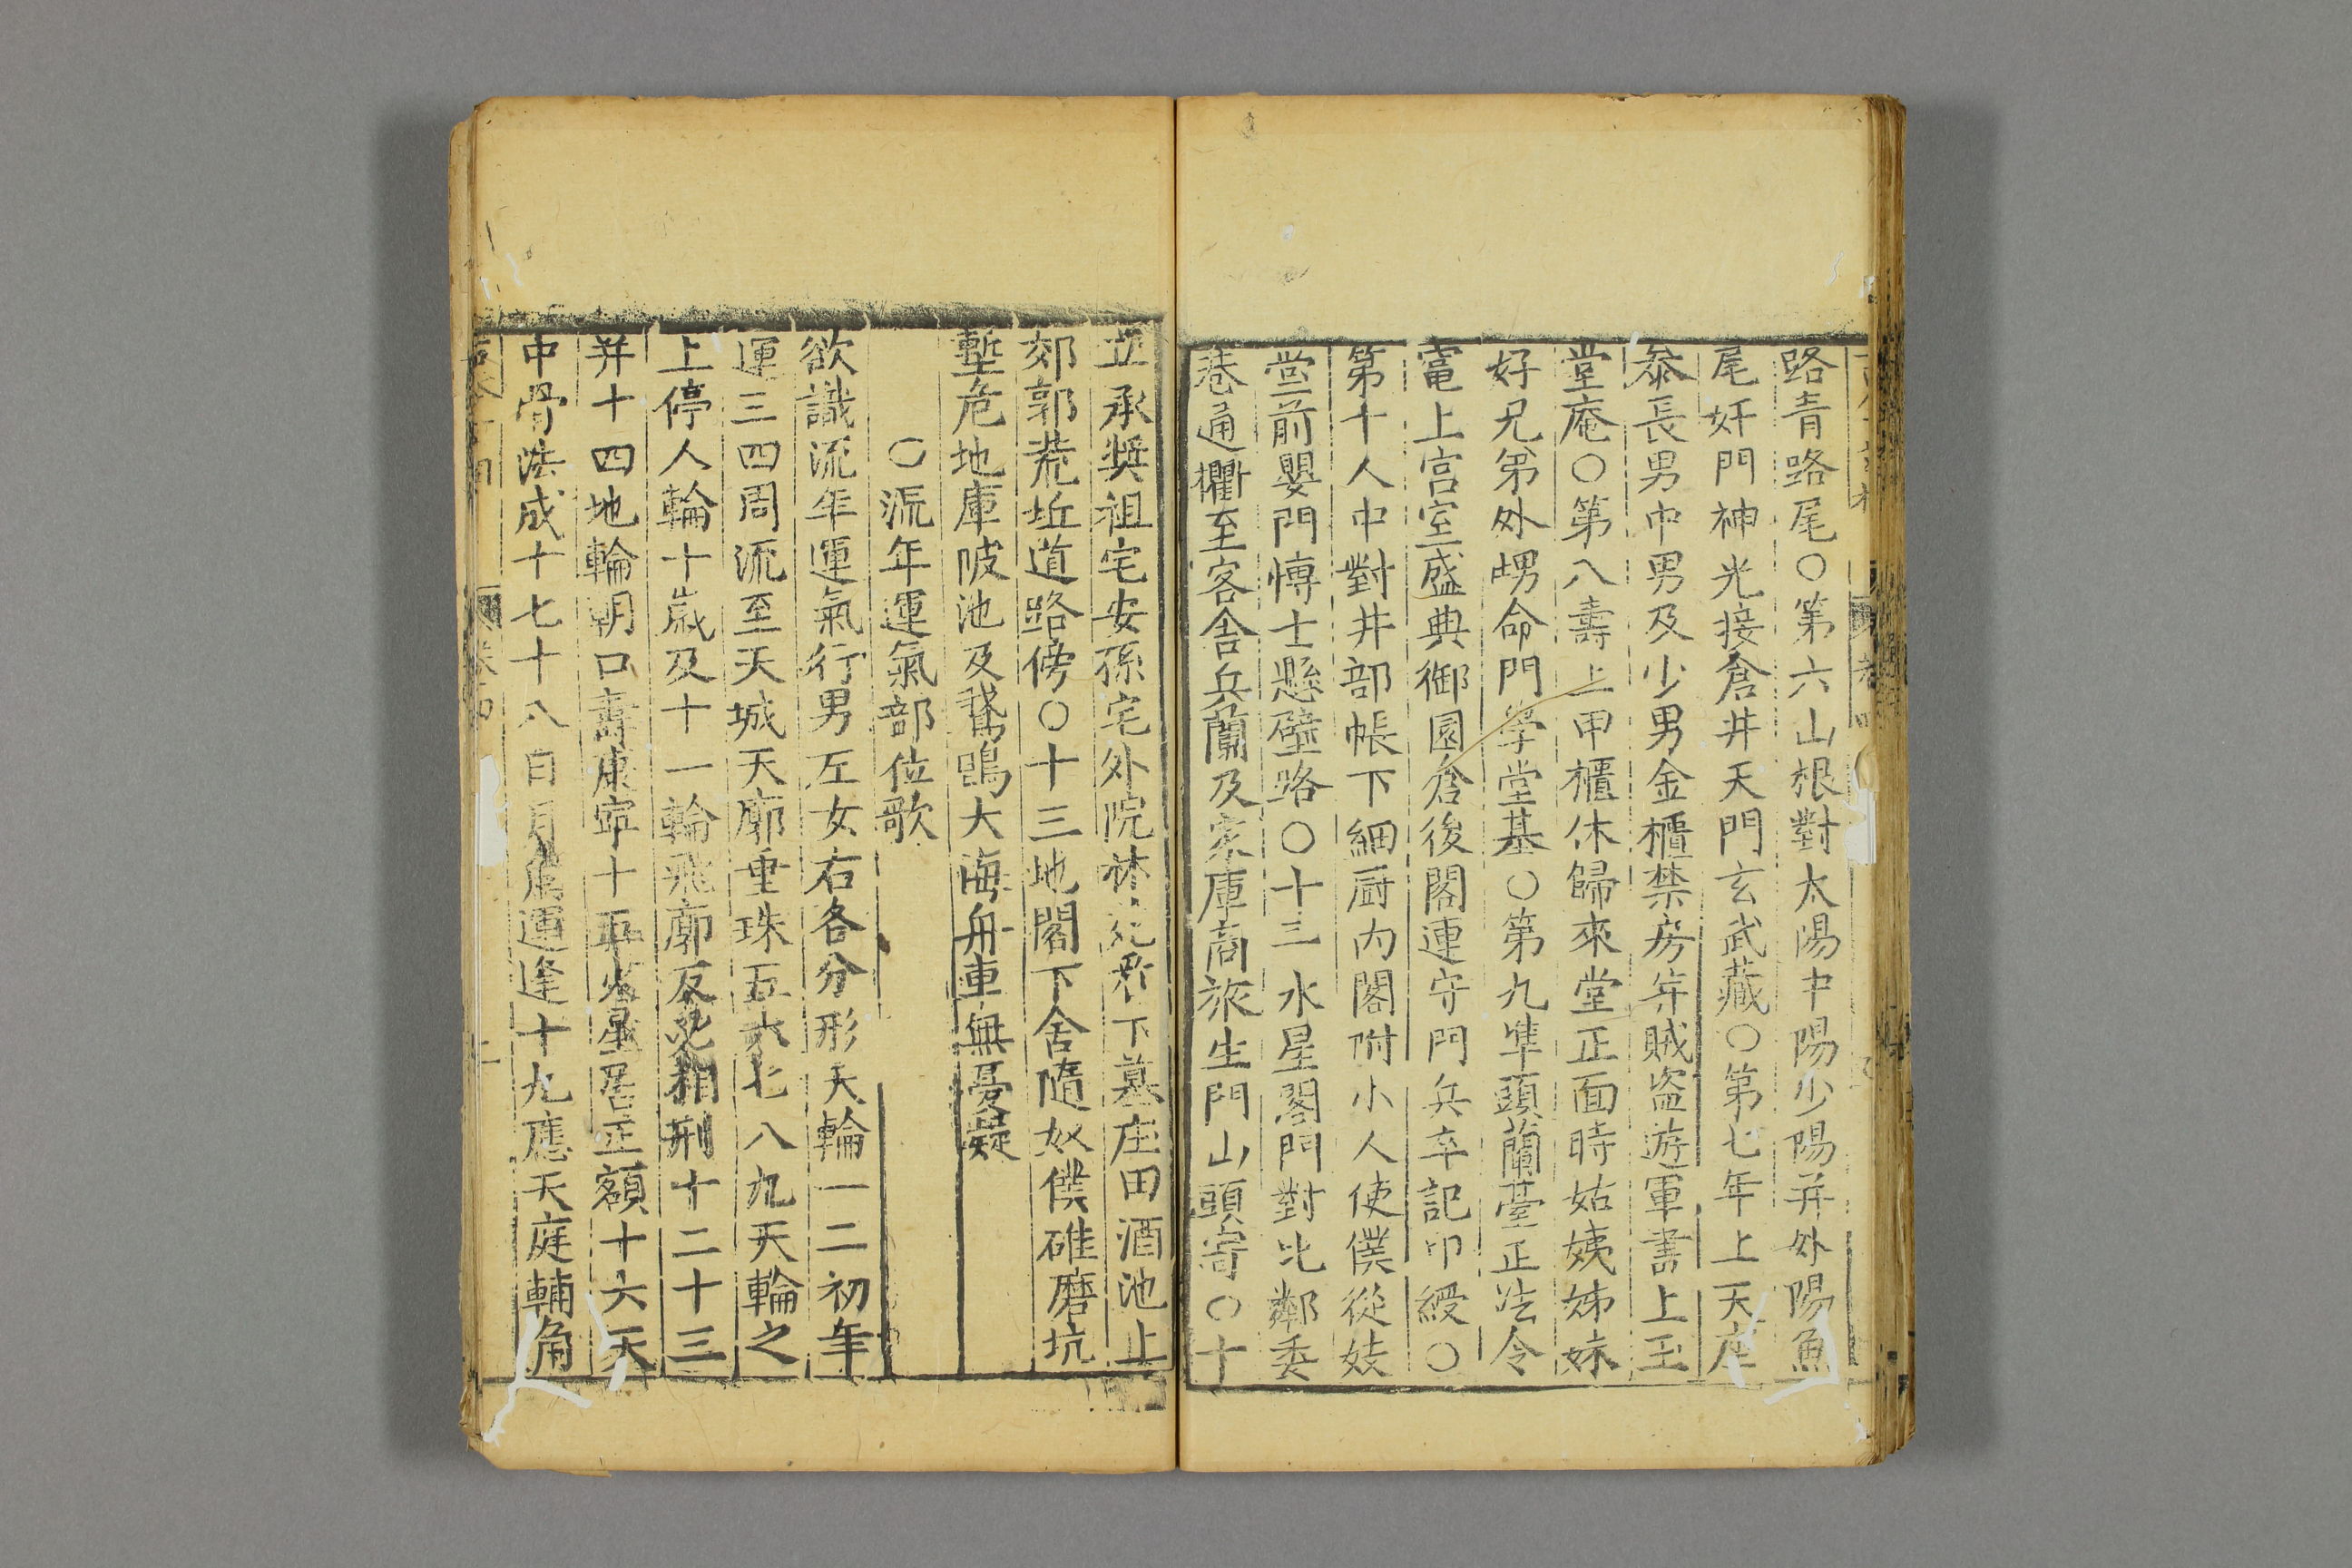 路青路尾○第六山根對太陽中陽少陽并外陽魚
尾奸門神光接倉井天門玄武藏○第七年上天座
叅長男中男及少男金櫃禁房并賊盗遊軍書上玉
堂庵○第八壽上甲櫃休歸來堂正面時姑姨姊妹
好兄弟外甥命門學堂基○第九凖頭蘭䑓正法令
竃上宫室盛典御園倉後閣連守門兵卒記印綬○
第十人中對井部帳下細厨内閣附小人使僕從妓
堂前嬰門愽士懸壁路○十三水星閣門對比鄰委
巷通衢至客舎兵蘭及家庫商旅生門山頭寄○十
立承奬祖宅安孫宅外院林下墓庄田酒池止
郊郭荒坵道路傍○十三地閣下舍隨奴僕碓磨坑
塹危地庫陂池及鵞鴨大海舟車無憂凝
○流年運氣部位歌
欲識流年運氣行男左女右各分形天輪一二初年
運三四周流至天城天廓垂珠五六七八九天輪之
上停人輪十歲及十一輪飛廓反必相刑十二十三
并十四地輪朝口壽康寜十五火星居正額十六天
中骨法成十七十八日月角運逢十九應天庭輔角